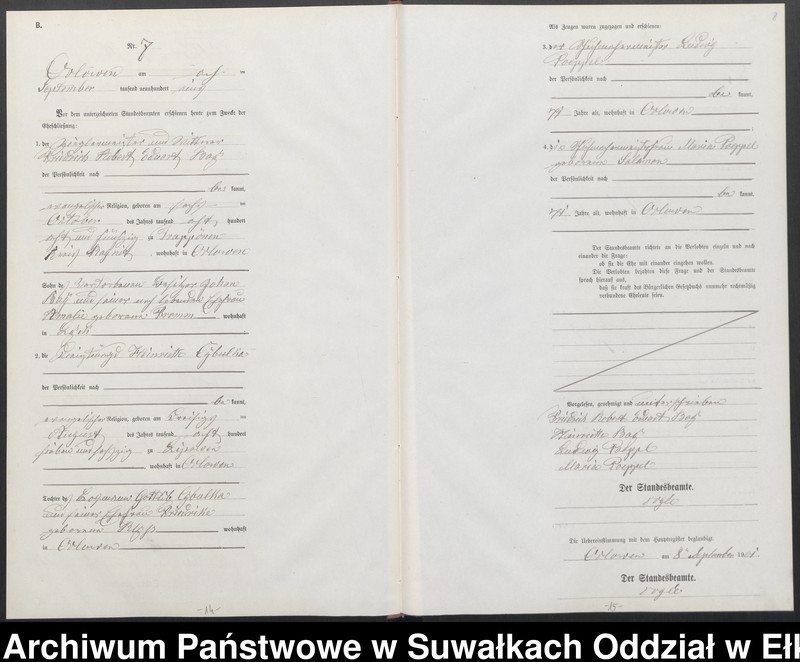 8.
Nr. 7
Orlowen am acht ten
September tausend neunhundert eins
Vor dem unterzeichneten Standesbeamten erschienen heute zum Zwecke der
Eheschließung:
1. der Zieglermeister und Wittwer
Friedrich Robert Eduart Baß
der Persönlichkeit nach
be kannt,
evangelischer Religion, geboren am ten
October des Jahres tausend acht hundert
acht und fünfzig zu Trappönen
Kreis Ragnit, wohnhaft in Orlowen
Sohn des verstorbenen Johan
Baß und seiner noch lebenden Ehefrau
Amalie geborenen wohnhaft
in
2. die Heinriette Cybulka
der Persönlichkeit nach
be kannt,
evangelischer Religion, geboren am dreißig ten
August des Jahres tausend acht hundert
sieben und sechzig zu
wohnhaft in Orlowen
Tochter des Losmann Gottlieb Cybulka
und seiner Ehefrau
geborenen wohnhaft
in Orlowen
-14-
8
Als Zeugen waren zugezogen und erschienen:
3. der Ludwig
Poeppel
der Persönlichkeit nach
be kannt,
Jahre alt, wohnhaft in Orlowen
4. die Maria Poeppel
geborene Salamon
der Persönlichkeit nach
be kannt,
Jahre alt, wohnhaft in Orlowen
Der Standesbeamte richtete an die Verlobten einzeln und nach
einander die Frage:
ob sie die Ehe mit einander eingehen wollen.
Die Verlobten bejahten diese Frage und der Standesbeamte
sprach hierauf aus,
daß sie kraft des Bürgerlichen Gesetzbuchs nunmehr rechtmäßig
verbundene Eheleute seien.
Vorgelesen, genehmigt und unterschrieben
Friedrich Robert Eduart Baß
Heinriette Baß
Ludwig Poeppel
Maria Poeppel
Der Standesbeamte.
Die Uebereinstimmung mit dem Hauptregister beglaubigt.
Orlowen am 8 September 1901.
Der Standesbeamte.
-15-
Archiwum Państwowe w Suwałkach Oddział w Eł